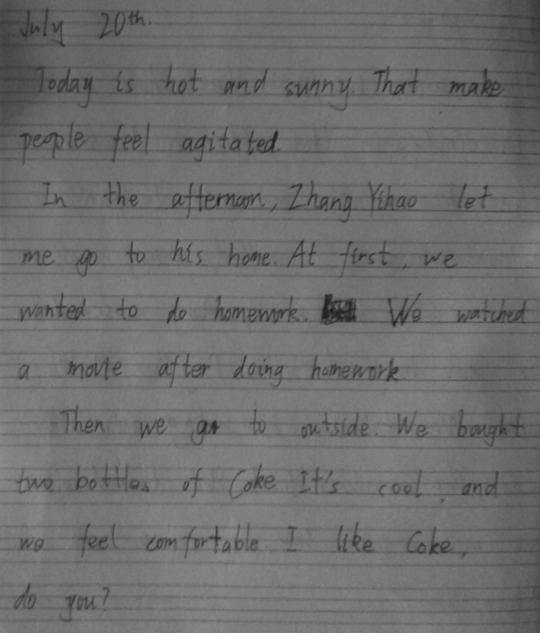 July 20th.
Today is hot and sunny. That make
people feel agitated.
In the afternoon, Zhang Yihao let
me go to his home. At first, we
wanted to do homework. We watched
a movie after doing homework
Then we go to outside. We bought
two bottles of Coke It's cool, and
we feel comfortable I like Coke,
do you?